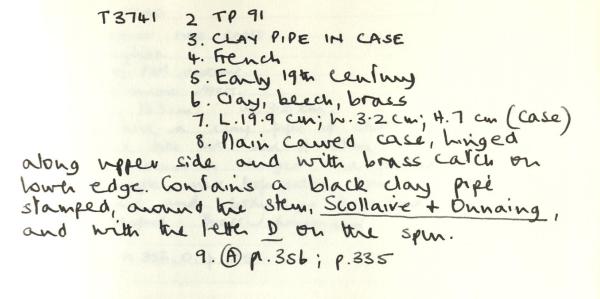 T3741 2 TP 91
3. CLAY PIPE IN CASE
4. French
5. Early 19th century
6. Clay, beech, brass
7. L.19.9 cm; W.3.2cm; H.7 cm (case)
8. Plain carved case, hinged
along upper side and with brass catch on
lower edge. Contains a black clay pipe
stamped, around the stem, Scollaire + Onnaing,
and with the letter D on the spur.
9. Ⓐ p.356; p.335